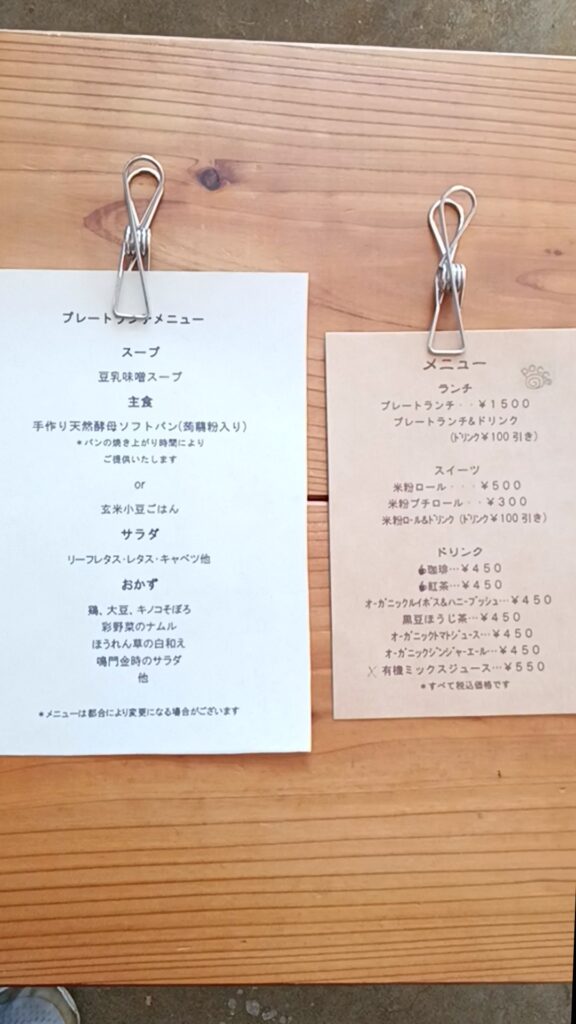 プレートランチメニュー
スープ
豆乳味噌スープ
主食
手作り天然酵母ソフトパン(蒟蒻粉入り)
*パンの焼き上がり時間により
ご提供いたします
or
玄米小豆ごはん
サラダ
リーフレタス・レタス・キャベツ他
おかず
鶏、大豆、キノコそぼろ
彩野菜のナムル
ほうれん草の白和え
鳴門金時のサラダ
他
*メニューは都合により変更になる場合がございます
メニュー
ランチ
プレートランチ・・¥1500
プレートランチ&ドリンク
(ドリンク¥100引き)
スイーツ
米粉ロール・・・¥500
米粉プチロール・・¥300
米粉ロール&ドリンク(ドリンク¥100引き)
ドリンク
珈琲…¥450
紅茶…¥450
オーガニックルイボス&ハニーブッシュ…¥450
黒豆ほうじ茶…¥450
オーガニックトマトジュース…¥450
オーガニックジンジャーエール…¥450
×有機ミックスジュース…¥550
*すべて税込価格です